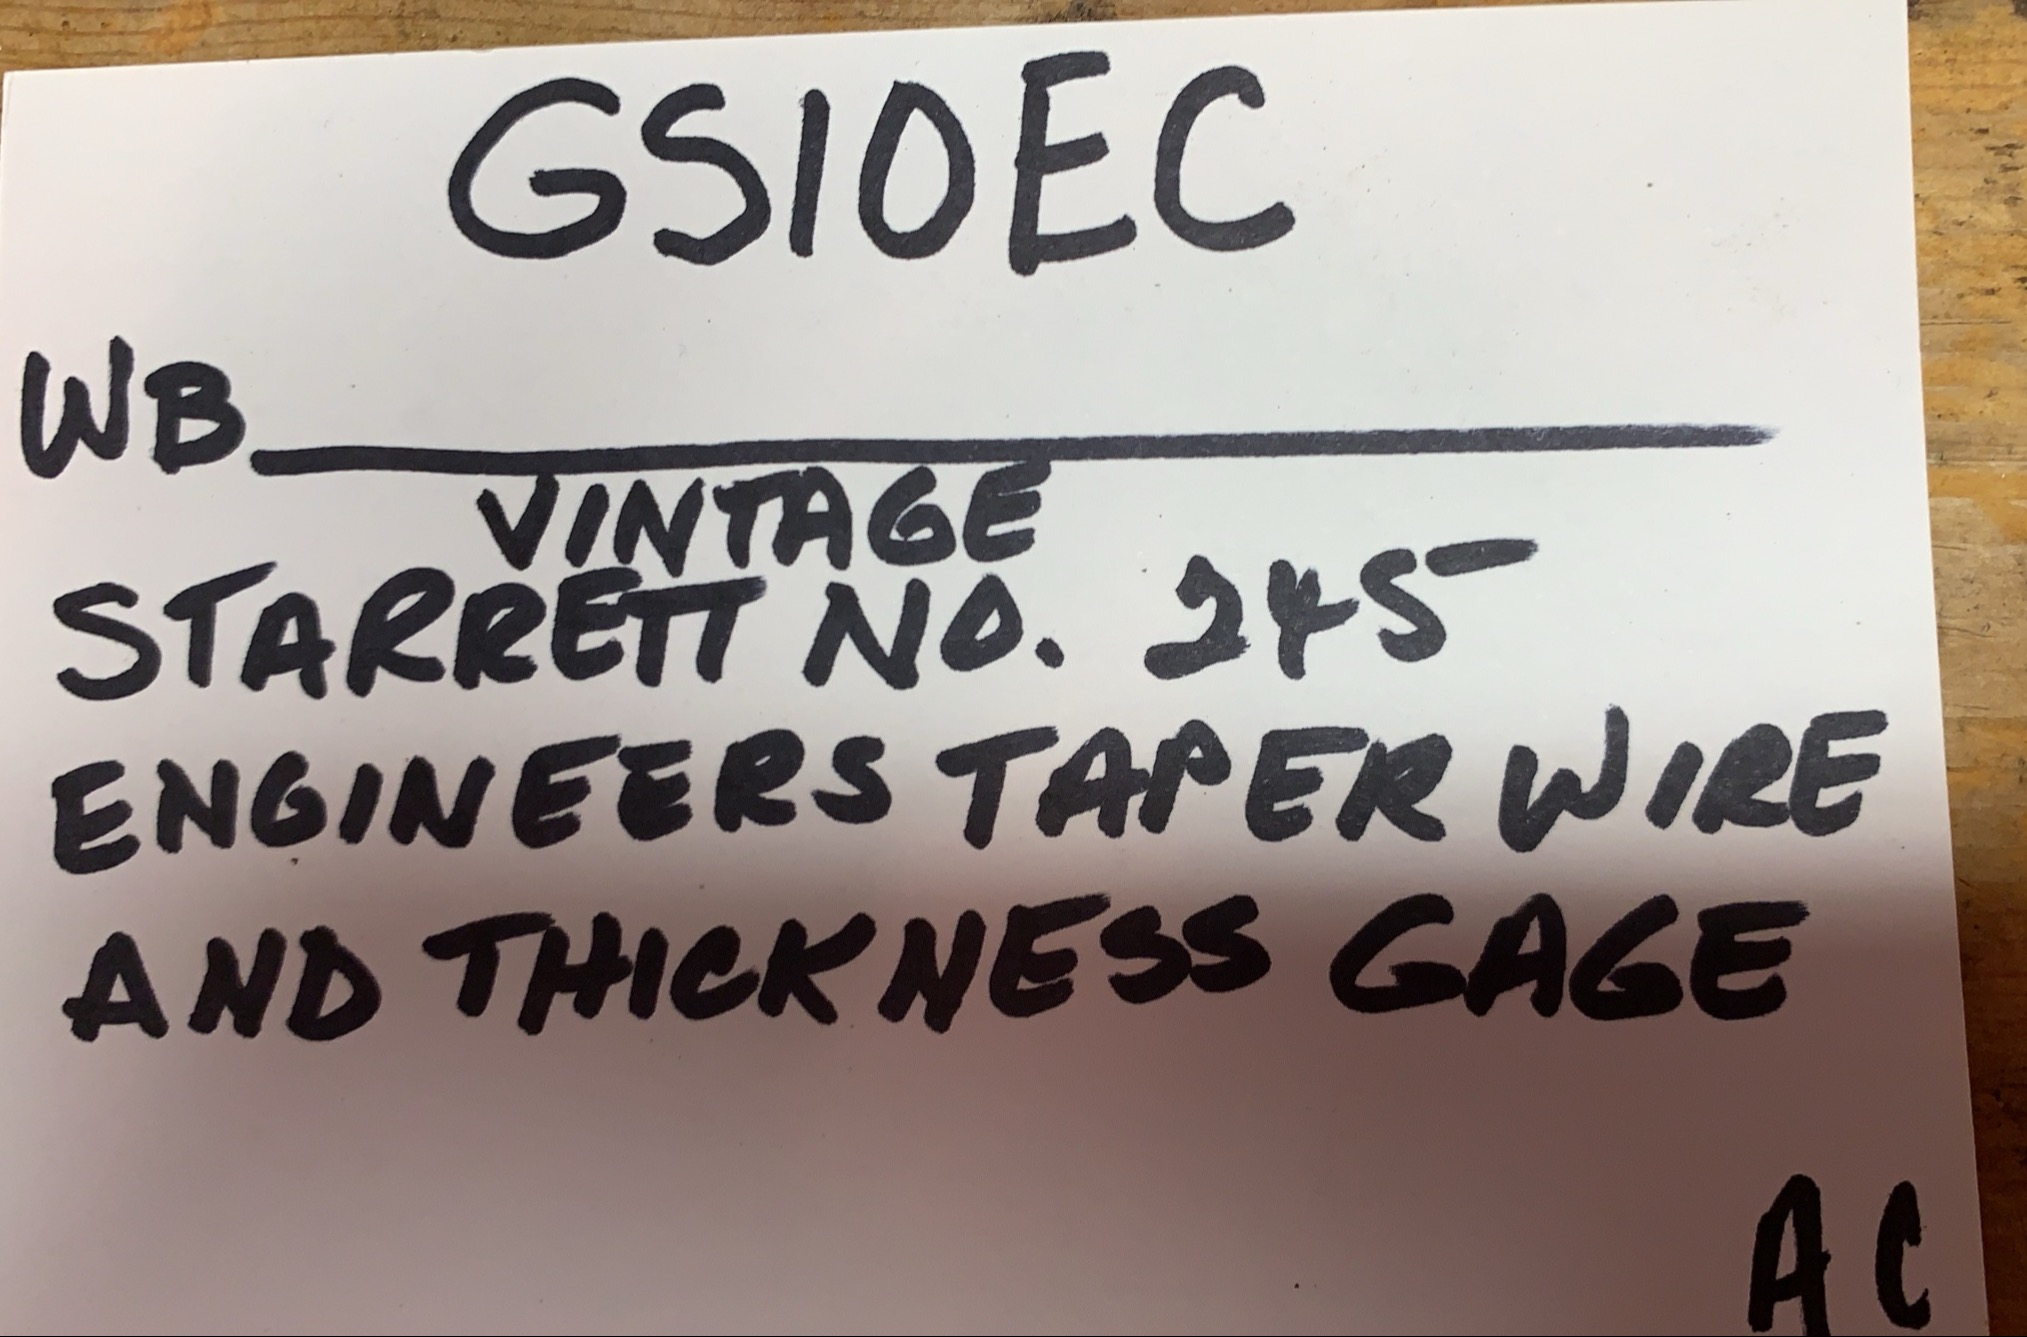 GS10EC
WB
VINTAGE
STARRETT NO. 245
ENGINEERS TAPER WIRE
AND THICKNESS GAGE
AC